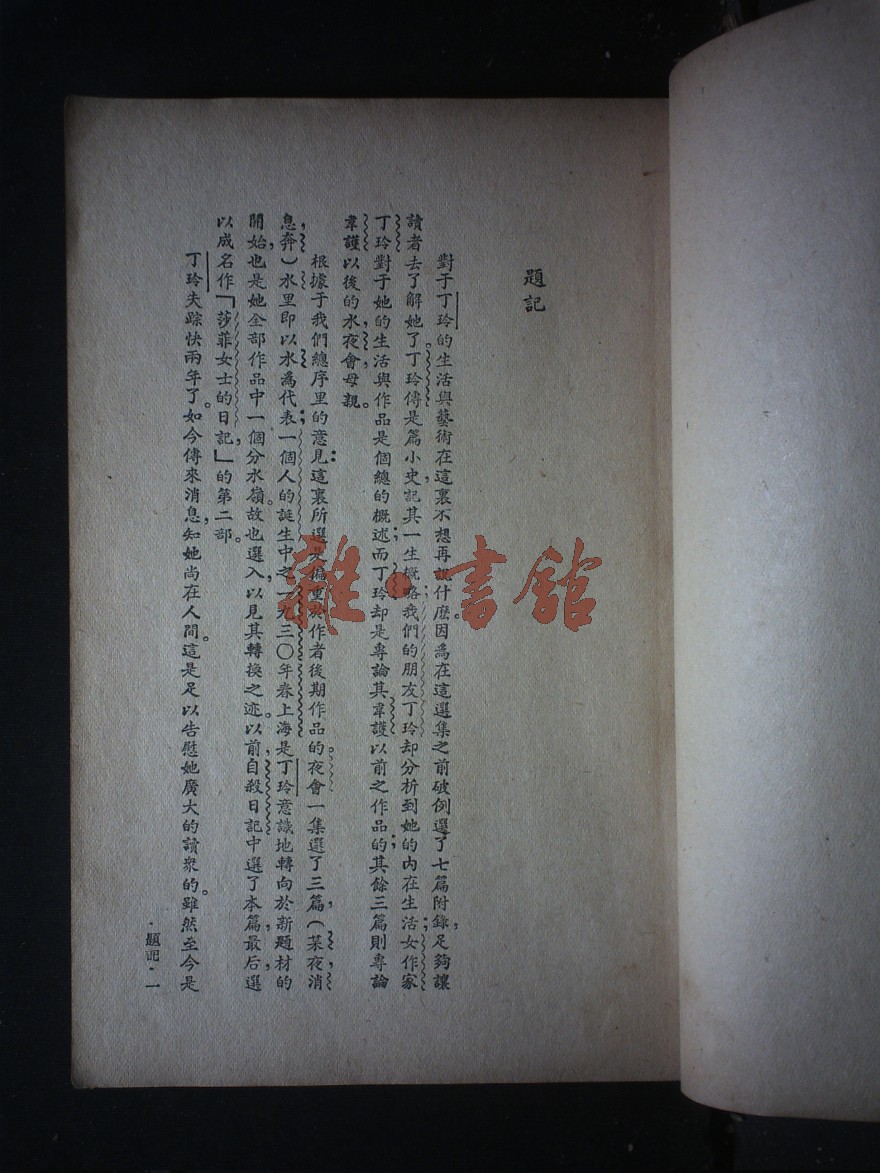 題記
對于丁玲的生活與藝術在這裏不想再說什麽。因爲在這選集之前破例選了七篇附錄，足夠讓
讀者去了解她了。丁玲傳是篇小史，記其一生概略；我們的朋友丁玲却分析到她的內在生活；女作家
丁玲對于她的生活與作品是個總的概述；而丁玲却是專論其韋護以前之作品的；其餘三篇則專論
韋護以後的水，夜會，母親。
根據于我們總序里的意見：這裏所選是偏重於作者後期作品的。夜會一集選了三篇，（某夜，消
息，奔）水里即以水爲代表；一個人的誕生中之一九三〇年春上海是丁玲意識地轉向於新題材的
開始，也是她全部作品中一個分水嶺。故也選入，以見其轉換之迹。以前，自殺日記中選了本篇，最后，選
以成名作「莎菲女士的日記」的第二部。
丁玲失踪快兩年了。如今傳來消息，知她尚在人間。這是足以告慰她廣大的讀衆的。雖然至今是
·題記·一
雜·書館